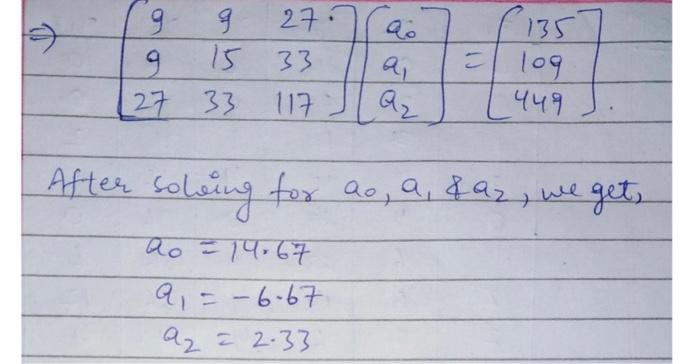 ⇒ [9 9 27 ; 9 15 33 ; 27 33 117] [a₀ ; a₁ ; a₂] = [135 ; 109 ; 449].
After solving for a₀, a₁ & a₂, we get,
a₀ = 14.67
a₁ = -6.67
a₂ = 2.33